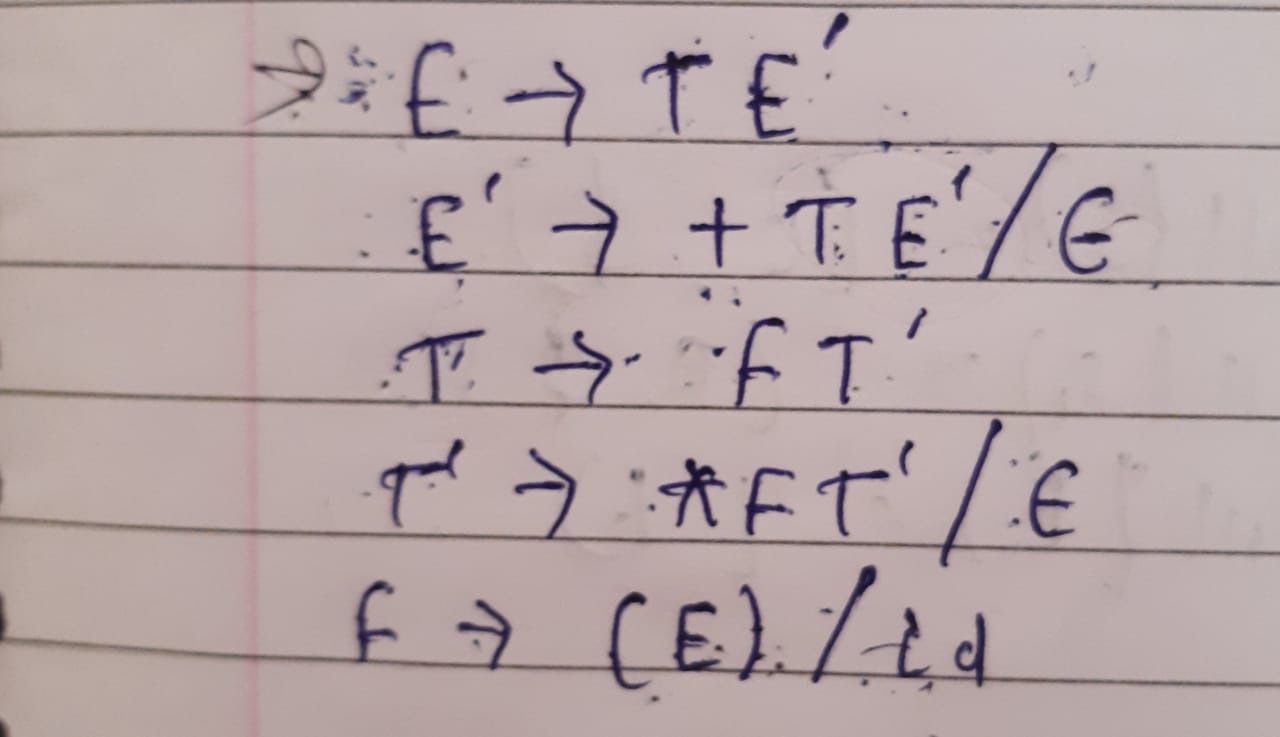 E → T E'
E' → + T E' / ε
T → F T'
T' → * F T' / ε
F → (E) / id